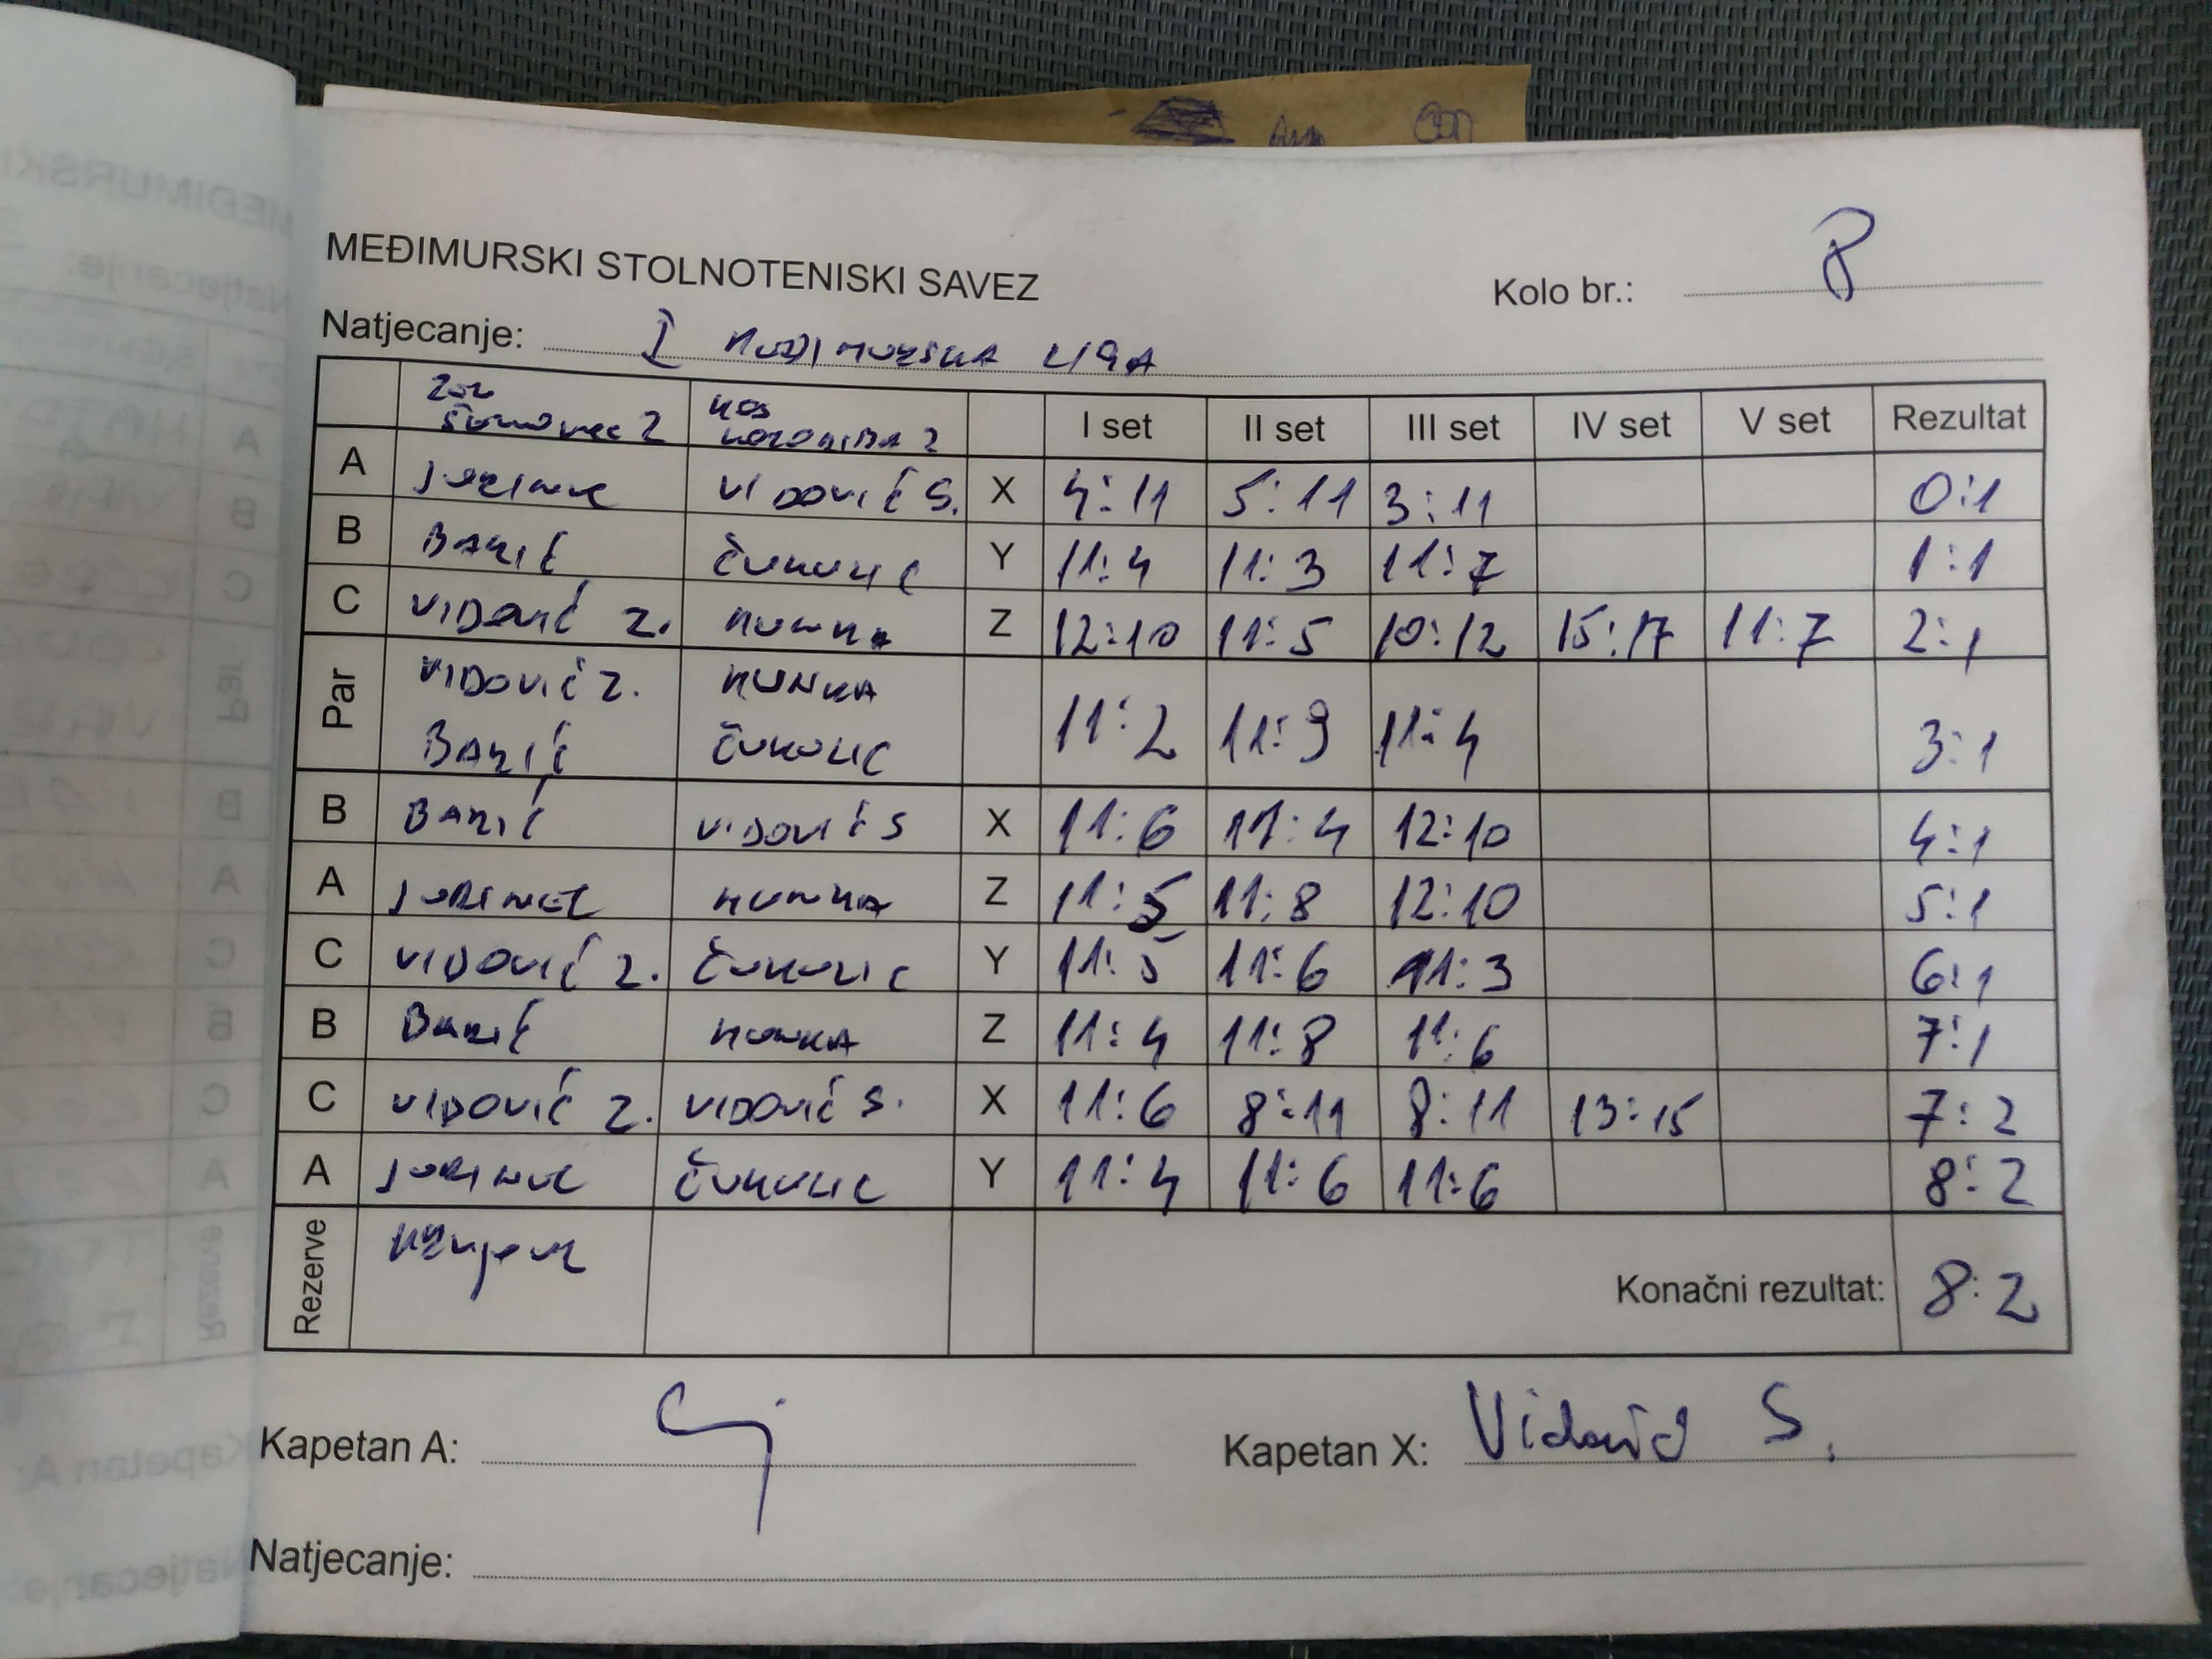 MEĐIMURSKI STOLNOTENISKI SAVEZ
Kolo br.: 8
Natjecanje: I MEĐIMURSKA LIGA
I set II set III set IV set V set Rezultat
A JURINEC VIDOVIĆ S. X 4:11 5:11 3:11 0:1
B BARIĆ ČUKULIC Y 11:4 11:3 11:7 1:1
C VIDOVIĆ Z. KUNKA Z 12:10 11:5 10:12 15:17 11:7 2:1
Par VIDOVIĆ Z. KUNKA
BARIĆ ČUKULIC 11:2 11:9 11:4 3:1
B BARIĆ VIDOVIĆ S X 11:6 11:4 12:10 4:1
A JURINEC KUNKA Z 11:5 11:8 12:10 5:1
C VIDOVIĆ Z. ČUKULIC Y 11:5 11:6 11:3 6:1
B BARIĆ KUNKA Z 11:4 11:8 11:6 7:1
C VIDOVIĆ Z. VIDOVIĆ S. X 11:6 8:11 8:11 13:15 7:2
A JURINEC ČUKULIC Y 11:4 11:6 11:6 8:2
Rezerve
Konačni rezultat: 8:2
Kapetan A:
Kapetan X: Vidović S.
Natjecanje: